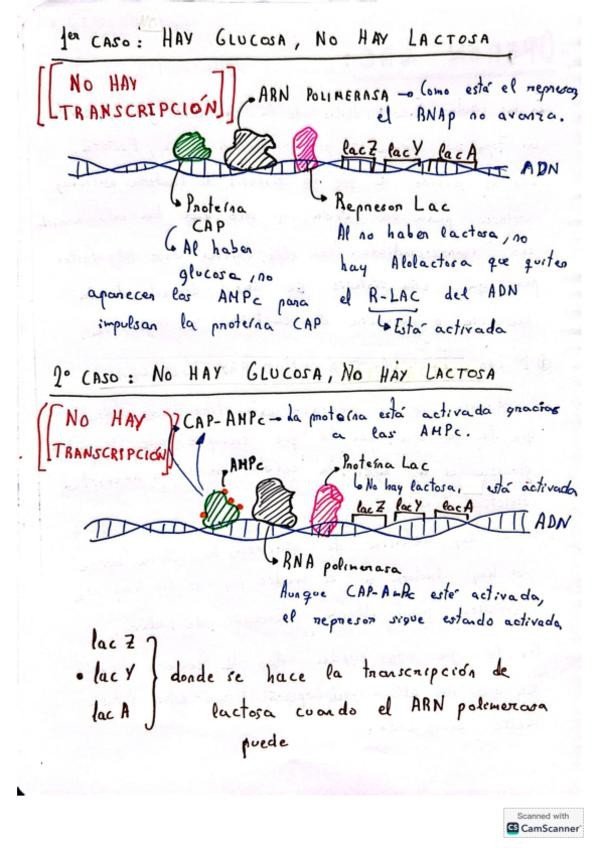 1er CASO: HAY GLUCOSA, NO HAY LACTOSA
[[NO HAY TRANSCRIPCIÓN]]
ARN POLIMERASA → Como está el represor, el RNAp no avanza.
lacZ lacY lacA
ADN
Proteína CAP
Al haber glucosa, no aparecen los AMPc para impulsar la proteína CAP
Represor Lac
Al no haber lactosa, no hay Alolactosa que quite el R-LAC del ADN
Está activada
2º CASO: NO HAY GLUCOSA, NO HAY LACTOSA
[[NO HAY TRANSCRIPCIÓN]]
CAP-AMPc → La proteína está activada gracias a las AMPc.
AMPc
Proteína Lac
No hay lactosa, está activada
lacZ lacY lacA
ADN
RNA polimerasa
Aunque CAP-AMPc esté activada,
el represor sigue estando activada
lac Z
• lac Y } donde se hace la transcripción de
lac A lactosa cuando el ARN polimerasa
puede
Scanned with
CS CamScanner